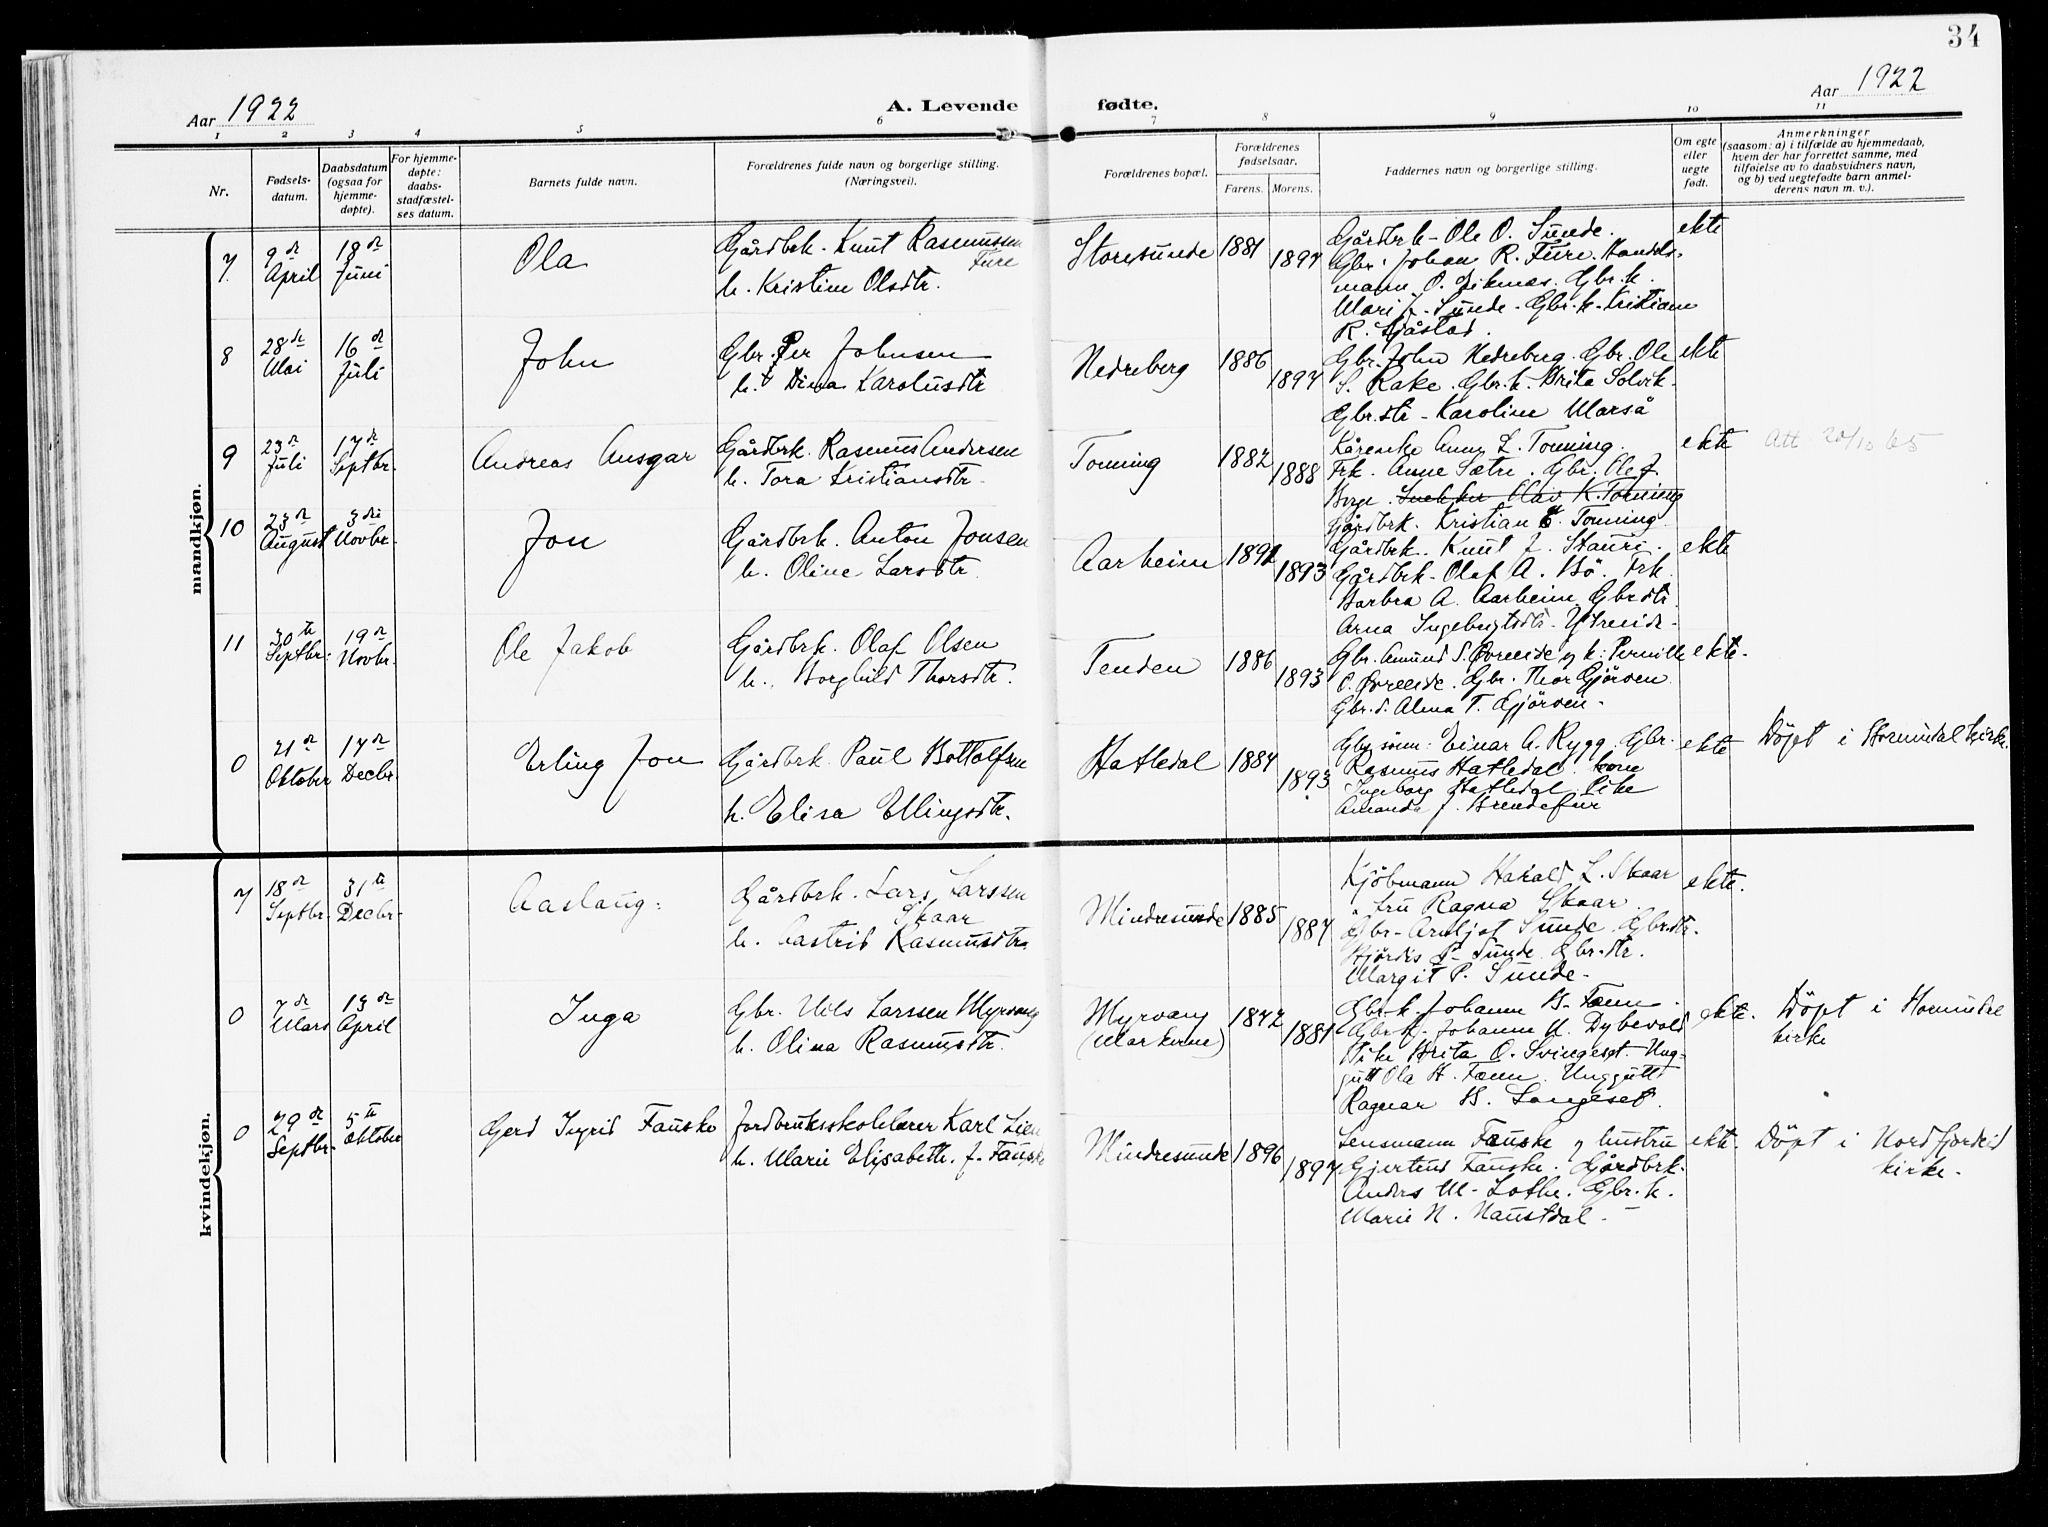 34
Aar 1922
A. Levende fødte.
Aar 1922
1 2 3 4 5 6 7 8 9 10 11
Nr.
Fødsels-
datum.
Daabsdatum
(ogsaa for
hjemme-
døpte).
For hjemme-
døpte:
daabs-
stadfæstel-
ses datum.
Barnets fulde navn.
Forældrenes fulde navn og borgerlige stilling.
(Næringsvei).
Forældrenes bopæl.
Forældrenes
fødselsaar.
Farens. Morens.
Faddernes navn og borgerlige stilling.
Om egte
eller
uegte
født.
Anmerkninger
(saasom: a) i tilfælde av hjemmedaab,
hvem der har forrettet samme, med
tilføielse av to daabsvidners navn,
og b) ved uegtefødte barn anmel-
derens navn m. v.).
mandkjøn.
7. 9de April 18de Juni
Ola
Gårdbrk. Knut Rasmussen
Fure
h. Kristine Olsdtr.
Storesunde 1881 1897
Gårdbrk - Ole O. Sunde.
Gbr. Johan R. Fure. Handels-
mann O. Gbr.k.
Mari J. Sunde - Gbr.k. Kristiane
R. Sjåstad.
ekte
8 28de Mai 16de Juli
John
Gbr. Per Johnsen
h. Dina Karolusdtr
Nedreberg 1886 1897
Gbr. John Nedreberg. Gbr. Ole
S. Rake. Gbr.k. Brita Solvik.
Gbr.dtr - Karoline Marså
ekte
9 23de Juli 17de Septbr.
Andreas Ansgar
Gårdbrk. Rasmus Andersen
h. Tora Kristiansdtr.
Tonning 1882 1888
Kårenke Anne L. Tonning.
Frk. Anne Sætre. Gbr. Ole J.
Berge. Olav K. Tonning
Gårdbrk. Kristian Tonning
ekte
Att 20/10 65
10 23de August 3die Novbr.
Jon
Gårdbrk. Anton Jonsen
h. Oline Larsdtr.
Aarheim 1891 1893
Gårdbrk. Knut J. Stauri.
Gårdbrk - Olaf A. Bö. Frk.
Barbra A. Aarheim Gbrdtr.
Arna Ingebrigtsdtr. Ytreeide.
ekte
11 30te Septbr. 19de Novbr.
Ole Jakob
Gårdbrk. Olaf Olsen
h. Borghild Thorsdtr.
Tenden 1886 1893
Gbr. Amund S. Övreeide og k: Pernille
O. Övreeide. Gbr. Thor Gjörven
Gbr.d. Alma T. Gjörven.
ekte.
0 21de Oktober 17de Decbr.
Erling Jon
Gårdbrk. Paul Bottolfsen
h. Elisa Ellingsdtr.
Hatledal 1884 1893
Gbr sönn: Einar A. Rygg. Gbr.
Rasmus Hatledal. kone
Ingeborg Hatledal. Pike
Amanda J. Brendefur
ekte
Döpt i Hornindal kirke.
kvindekjøn.
7 18de Septbr. 31te Decbr.
Aaslaug.
Gårdbrk. Lars Larssen
Skaar
h. Aastrid Rasmusdtr.
Mindresunde 1885 1887
Kjöbmann Harald L. Skaar
" fru Ragna Skaar.
Gbr - Arnljot Sunde. Gbr.dtr.
Hjördis P. Sunde. Gbr.dtr.
Margit P. Sunde.
ekte.
0 7de Mars 13de April
Inga
Gbr. Nils Larssen Myrvang
h. Olina Rasmusdtr.
Myrvang
(Markerne) 1872 1881
Gbr.k. Johanne B. Tomn.
Gbr.k. Johanne N. Dybevold
Pike Brita O. Svingeset. Ung-
gutt Ola H. Tomn. Unggutt
Ragnar B. Langeset.
ekte.
Döpt i Hornindal
kirke
0 29de Septbr. 5te Oktober
Gerd Ingrid Fauske
Jordbruksskolelærer Karl Lien
h. Marie Elisabeth. f. Fauske
Mindresunde 1896 1897
Lensmann Fauske og hustru
Gjertrud Fauske. Gårdbrk.
Anders M. Lothe. Gbr.k.
Marie N. Naustdal.
ekte.
Döpt i Nordfjordeid
kirke.